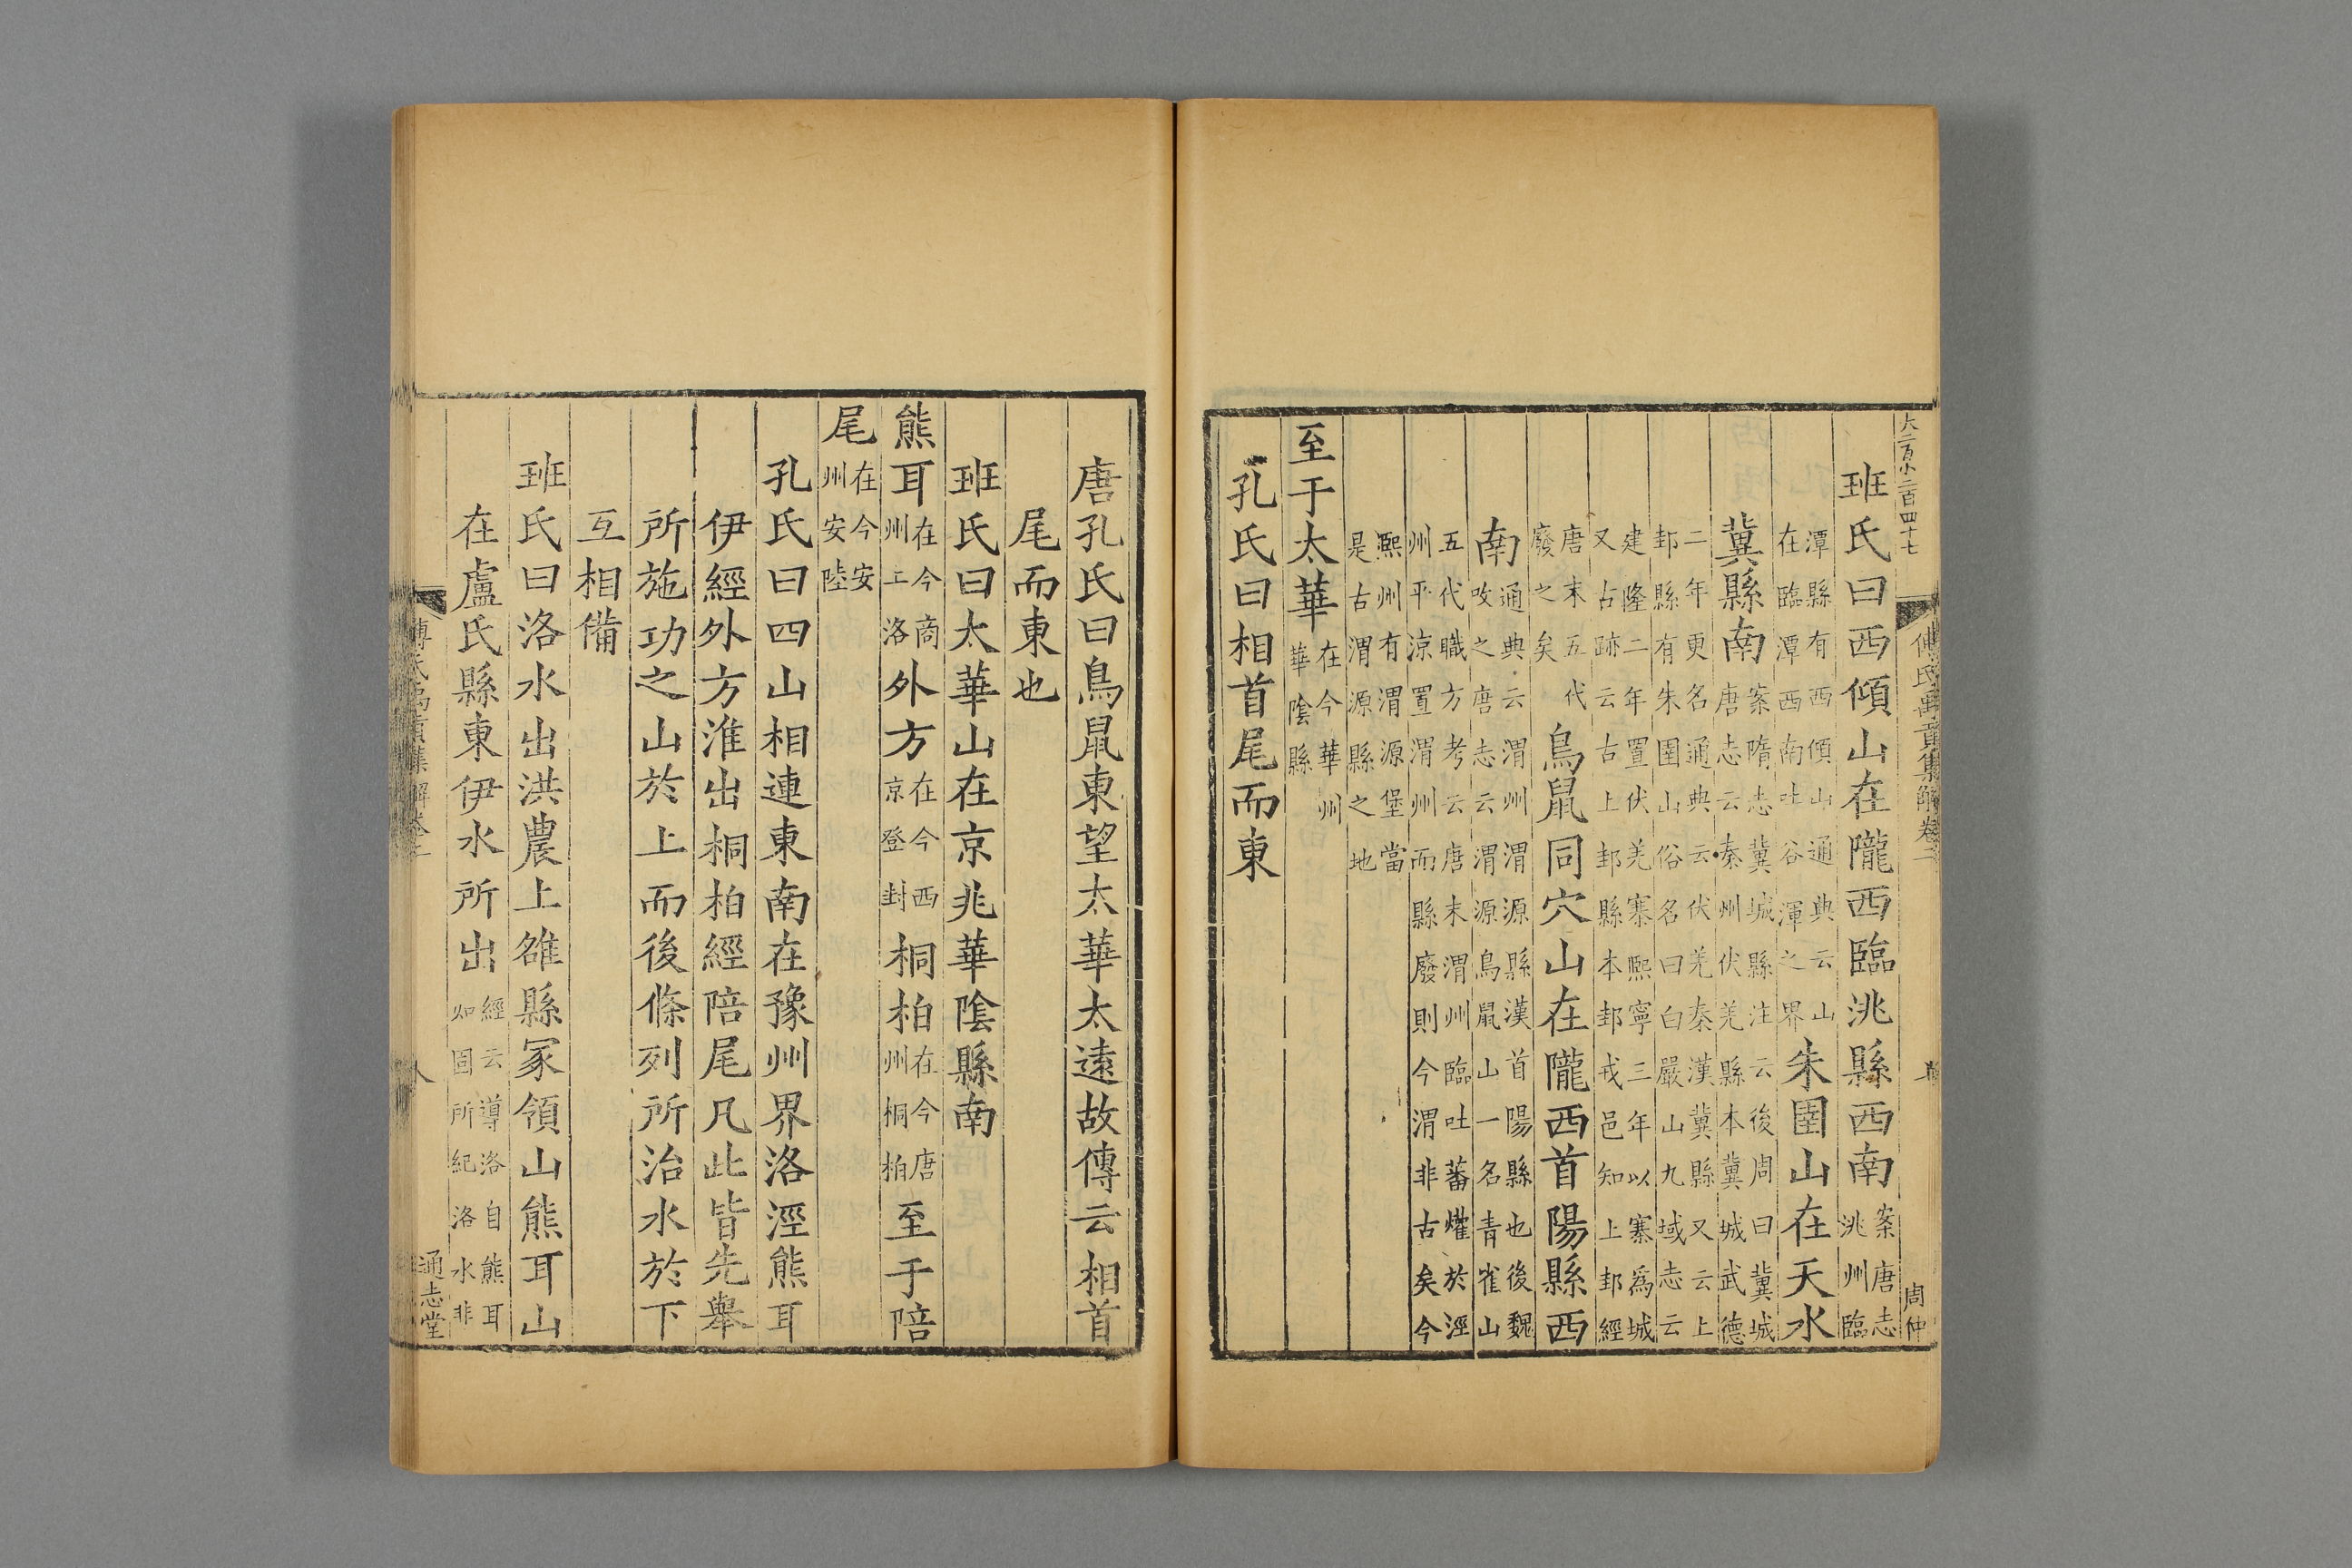 大二百小二百四十七
傅氏禹貢集解卷二
周仲
班氏曰西傾山在隴西臨洮縣西南案唐志洮州臨
潭縣有西傾山通典云山在臨潭西南吐谷渾之界朱圉山在天水
冀縣南案隋志冀城縣注云後周曰冀城唐志云秦州伏羌縣本冀城武德
二年更名通典云伏羌秦漢冀縣又云上邽縣有朱圉山俗名曰白巖山九域志云
建隆二年置伏羌寨熙寧三年以寨為城又古跡云古上邽縣本邽戎邑知上邽經
唐末五代廢之矣鳥鼠同穴山在隴西首陽縣西
南通典云渭州渭源縣漢首陽縣也後魏攺之唐志云渭源鳥鼠山一名青雀山
五代職方考云唐末渭州臨吐蕃權於涇州平涼置渭州而縣廢則今渭非古矣今
熙州有渭源堡當是古渭源縣之地
至于太華在今華州華陰縣
孔氏曰相首尾而東
唐孔氏曰鳥鼠東望太華太遠故傳云相首
尾而東也
班氏曰太華山在京兆華陰縣南
熊耳在今商州上洛外方在今西京登封桐柏在今唐州桐柏至于陪
尾在今安州安陸
孔氏曰四山相連東南在豫州界洛涇熊耳
伊經外方淮出桐柏經陪尾凡此皆先舉
所施功之山於上而後條列所治水於下
互相備
班氏曰洛水出洪農上雒縣冢領山熊耳山
在盧氏縣東伊水所出經云導洛自熊耳如固所紀洛水非
傅氏禹貢集解卷二
八
通志堂